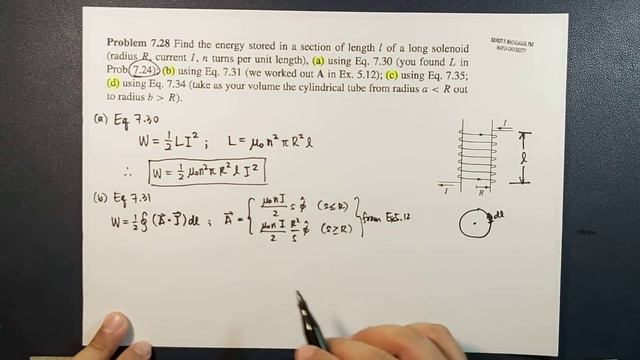 Problem 7.28 Find the energy stored in a section of length l of a long solenoid
(radius R, current I, n turns per unit length), (a) using Eq. 7.30 (you found L in
Prob. 7.24); (b) using Eq. 7.31 (we worked out A in Ex. 5.12); (c) using Eq. 7.35;
(d) using Eq. 7.34 (take as your volume the cylindrical tube from radius a < R out
to radius b > R).
(a) Eq 7.30
W = ½LI² ; L = μ₀n²πR²l
∴ W = ½ μ₀n²πR²l I²
(b) Eq 7.31
W = ½∮(A⃗·I⃗)dl ; A⃗ = { μ₀nI/2 s φ̂ (s≤R)
μ₀nI/2 R²/s φ̂ (s≥R) } from Ex 5.12
I
l
I
R
dl